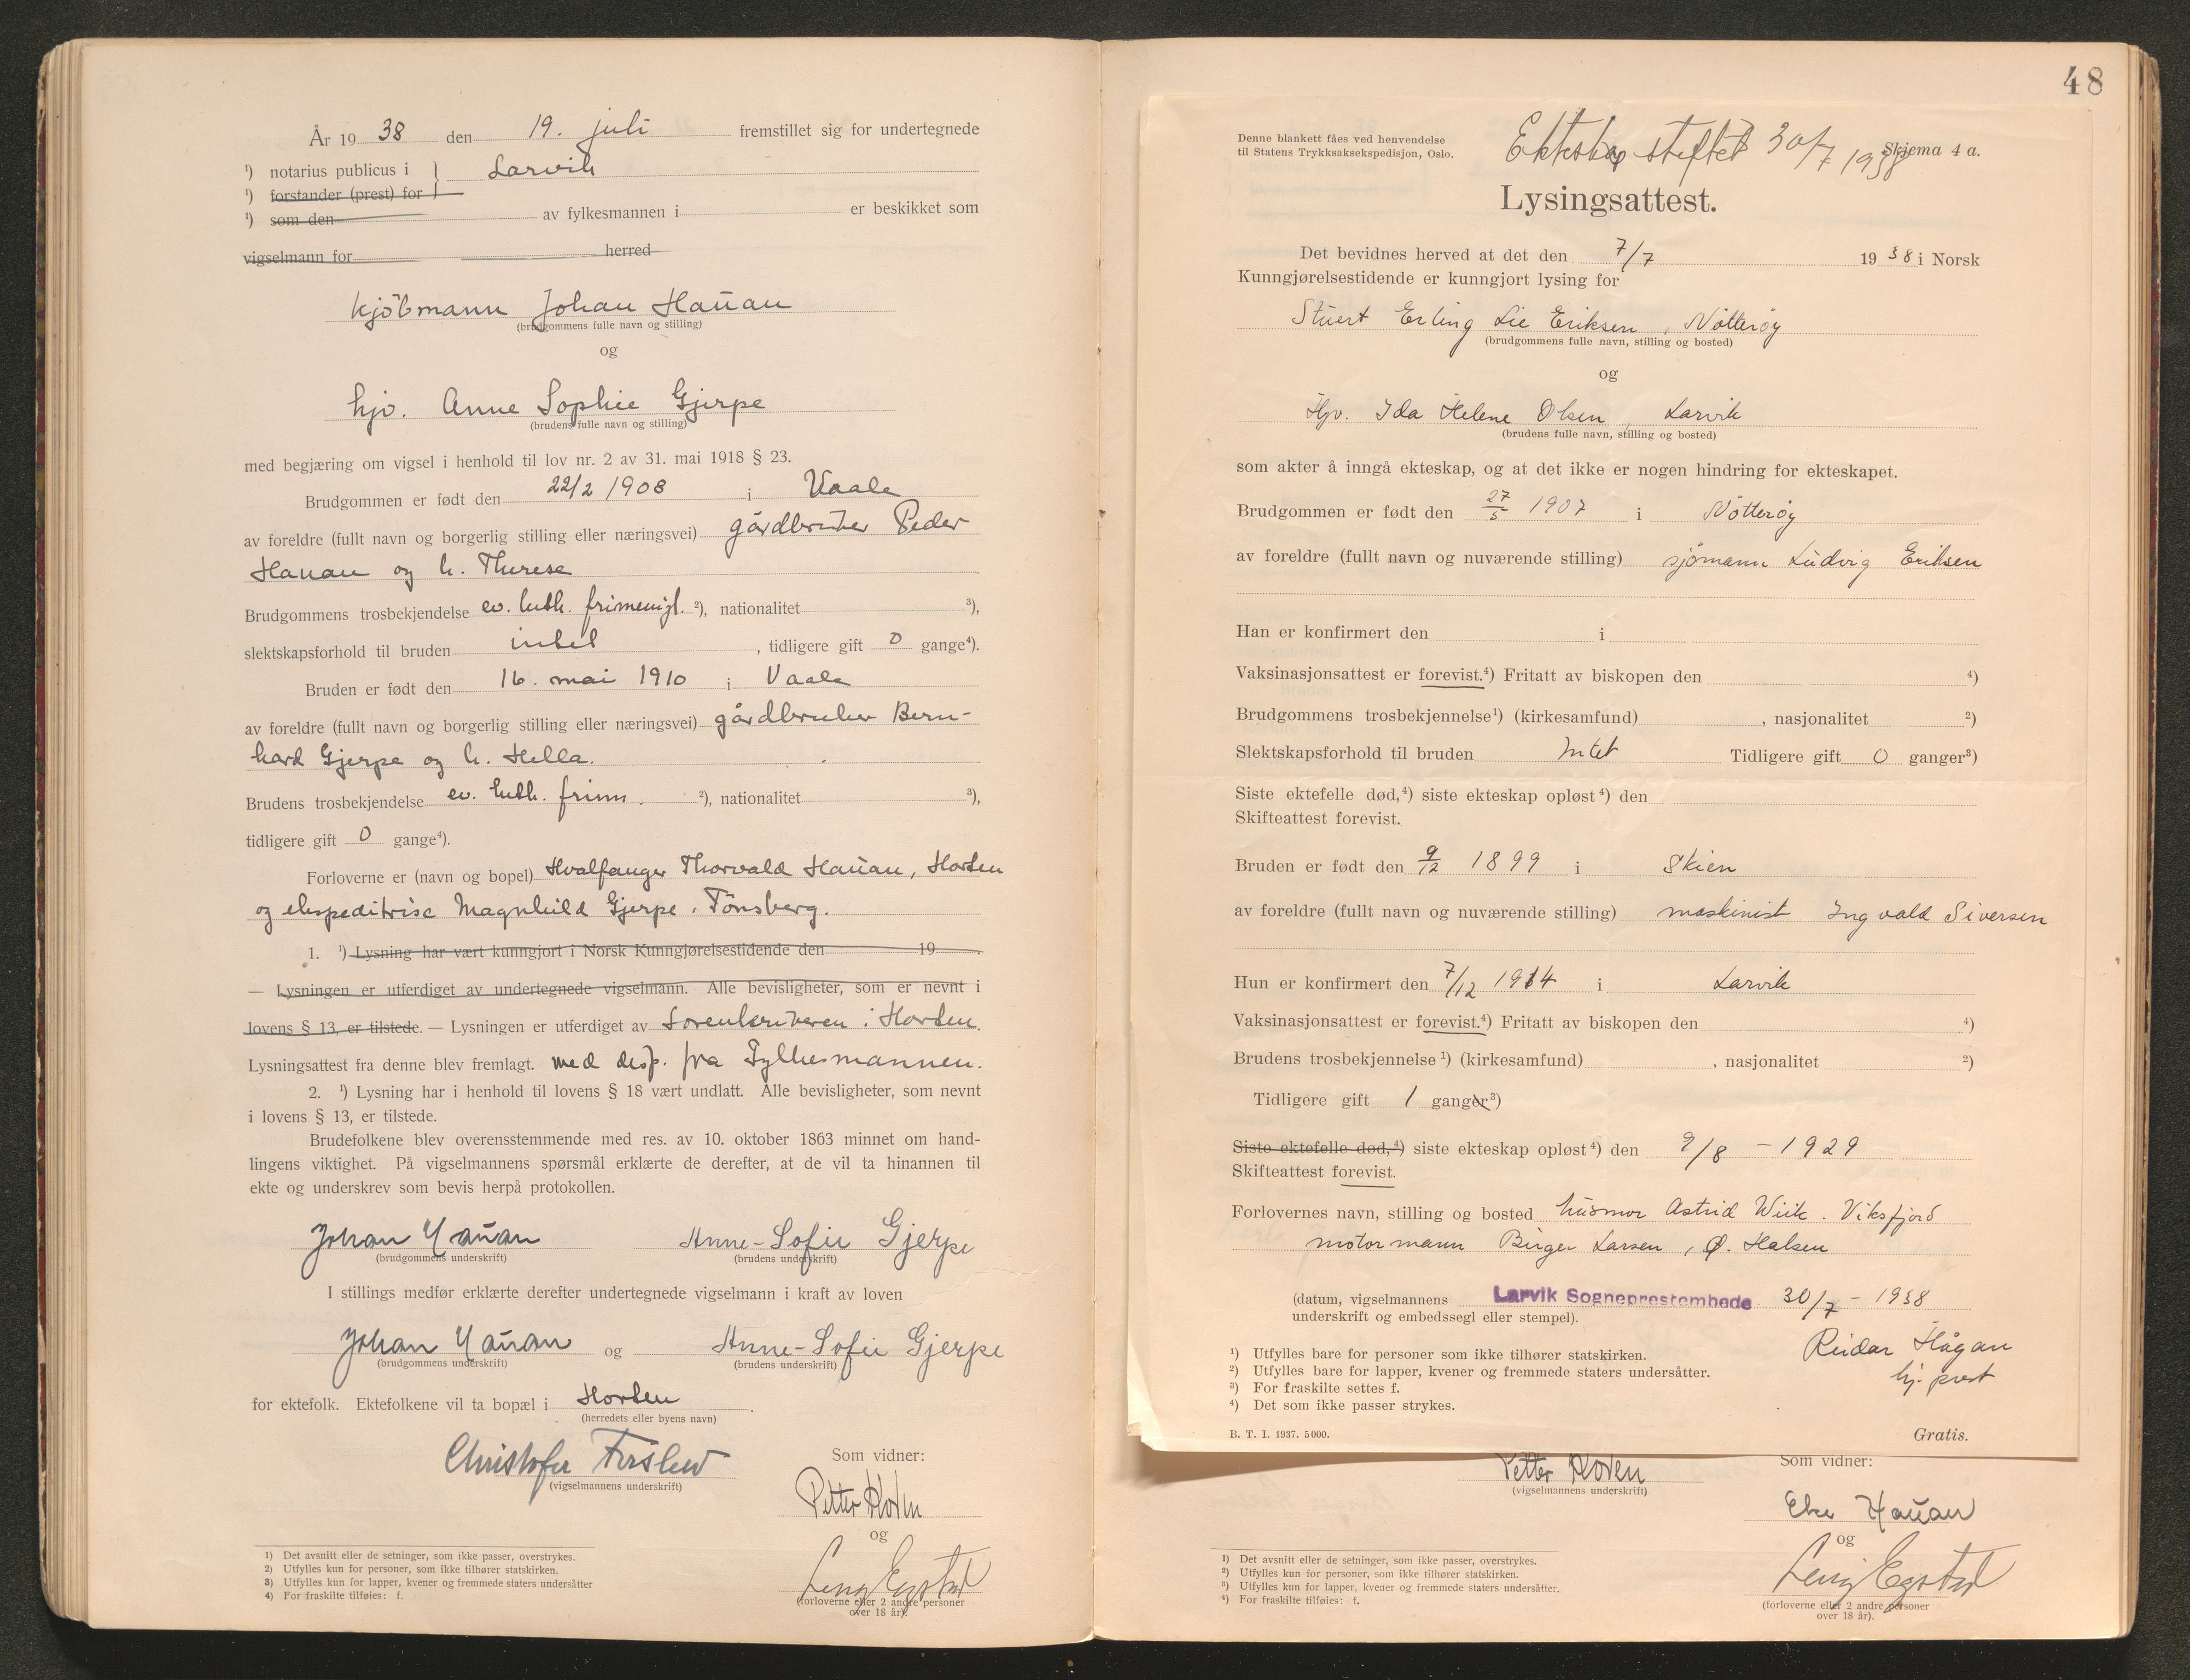 År 19 38 den 19. juli fremstillet sig for undertegnede
¹) notarius publicus i } Larvik
¹) forstander (prest) for
¹) som den av fylkesmannen i er beskikket som
vigselmann for herred
Kjöbmann Johan Hauan
(brudgommens fulle navn og stilling)
og
hjv. Anne Sophie Gjerpe
(brudens fulle navn og stilling)
med begjæring om vigsel i henhold til lov nr. 2 av 31. mai 1918 § 23.
Brudgommen er født den 22/2 1908 i Vaale
av foreldre (fullt navn og borgerlig stilling eller næringsvei) gårdbruker Peder
Hauan og h. Therese
Brudgommens trosbekjendelse ev. luth. frimenigh. ²), nationalitet ³),
slektskapsforhold til bruden intet, tidligere gift 0 gange⁴).
Bruden er født den 16. mai 1910 i Vaale
av foreldre (fullt navn og borgerlig stilling eller næringsvei) gårdbruker Bern-
hard Gjerpe og h. Hella.
Brudens trosbekjendelse ev. luth. frim. ²), nationalitet ³),
tidligere gift 0 gange⁴).
Forloverne er (navn og bopel) Hvalfanger Thorvald Hauan, Horten
og ekspeditrise Magnhild Gjerpe, Tönsberg.
1. ¹) Lysning har vært kunngjort i Norsk Kunngjørelsestidende den 19 .
— Lysningen er utferdiget av undertegnede vigselmann. Alle bevisligheter, som er nevnt i
lovens § 13, er tilstede. — Lysningen er utferdiget av Sorenskriveren i Horten.
Lysningsattest fra denne blev fremlagt. med disp. fra Fylkesmannen.
2. ¹) Lysning har i henhold til lovens § 18 vært undlatt. Alle bevisligheter, som nevnt
i lovens § 13, er tilstede.
Brudefolkene blev overensstemmende med res. av 10. oktober 1863 minnet om hand-
lingens viktighet. På vigselmannens spørsmål erklærte de derefter, at de vil ta hinannen til
ekte og underskrev som bevis herpå protokollen.
Johan Hauan Anne-Sofie Gjerpe
(brudgommens underskrift) (brudens underskrift)
I stillings medfør erklærte derefter undertegnede vigselmann i kraft av loven
Johan Hauan og Anne-Sofie Gjerpe
(brudgommens underskrift) (brudens underskrift)
for ektefolk. Ektefolkene vil ta bopæl i Horten .
(herredets eller byens navn)
Christofer
(vigselmannens underskrift)
Som vidner:
Petter Hoven
og
(forloverne eller 2 andre personer
over 18 år).
1) Det avsnitt eller de setninger, som ikke passer, overstrykes.
2) Utfylles kun for personer, som ikke tilhører statskirken.
3) Utfylles kun for lapper, kvener og fremmede staters undersåtter
4) For fraskilte tilføies: f.
48
Denne blankett fåes ved henvendelse
til Statens Trykksaksekspedisjon, Oslo.
Ekteskap stiftet 30/7 1938
Skjema 4 a.
Lysingsattest.
Det bevidnes herved at det den 7/7 19 38 i Norsk
Kunngjørelsestidende er kunngjort lysing for
Stuert Erling Lie Eriksen, Nötteröy
(brudgommens fulle navn, stilling og bosted)
og
Hjv. Ida Helene Olsen, Larvik
(brudens fulle navn, stilling og bosted)
som akter å inngå ekteskap, og at det ikke er nogen hindring for ekteskapet.
Brudgommen er født den 27/5 1907 i Nötteröy
av foreldre (fullt navn og nuværende stilling) sjömann Ludvig Eriksen
Han er konfirmert den i
Vaksinasjonsattest er forevist.⁴) Fritatt av biskopen den ⁴)
Brudgommens trosbekjennelse¹) (kirkesamfund) , nasjonalitet ²)
Slektskapsforhold til bruden Intet Tidligere gift 0 ganger³)
Siste ektefelle død,⁴) siste ekteskap opløst⁴) den
Skifteattest forevist.
Bruden er født den 9/12 1899 i Skien
av foreldre (fullt navn og nuværende stilling) maskinist Ingvald Siversen
Hun er konfirmert den 7/12 1914 i Larvik
Vaksinasjonsattest er forevist.⁴) Fritatt av biskopen den ⁴)
Brudens trosbekjennelse¹) (kirkesamfund) , nasjonalitet ²)
Tidligere gift 1 ganger³)
Siste ektefelle død,⁴) siste ekteskap opløst⁴) den 9/8 – 1929
Skifteattest forevist.
Forlovernes navn, stilling og bosted husmor Astrid Wiik. Viksfjord
motormann Birger Larsen, Ø. Halsen
(datum, vigselmannens Larvik Sogneprestembede 30/7 – 1938
underskrift og embedssegl eller stempel).
Reidar Hågan
hj. prest
¹) Utfylles bare for personer som ikke tilhører statskirken.
²) Utfylles bare for lapper, kvener og fremmede staters undersåtter.
³) For fraskilte settes f.
⁴) Det som ikke passer strykes.
B. T. I. 1937. 5000.
Gratis.
Petter Hoven
(vigselmannens underskrift)
Som vidner:
Hauan
og
(forloverne eller 2 andre personer
over 18 år).
¹) Det avsnitt eller de setninger, som ikke passer, overstrykes.
²) Utfylles kun for personer, som ikke tilhører statskirken.
³) Utfylles kun for lapper, kvener og fremmede staters undersåtter.
⁴) For fraskilte tilføies: f.